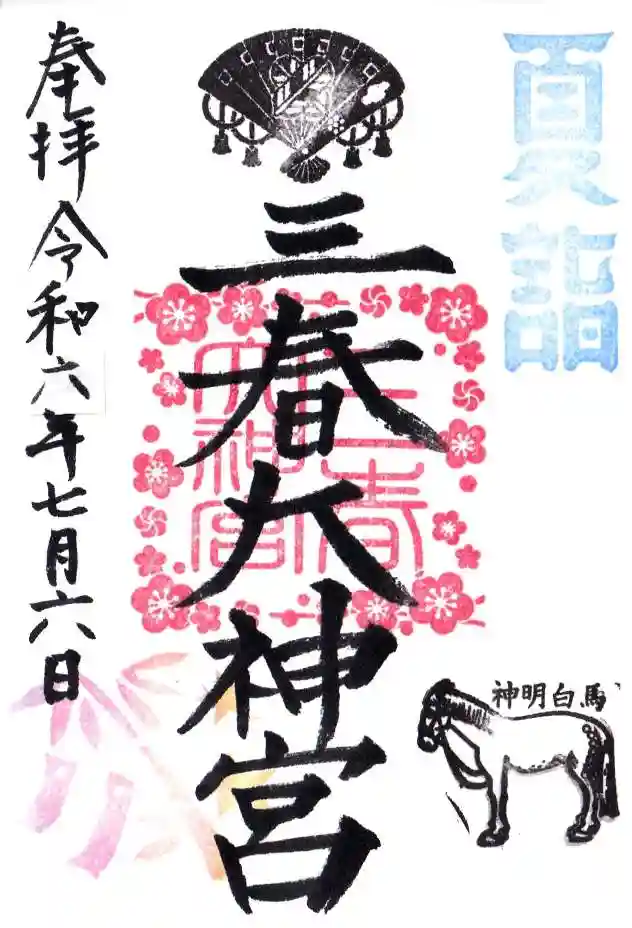 夏詣
三春大神宮
三春
大神宮
奉拝 令和六年七月六日
神明白馬